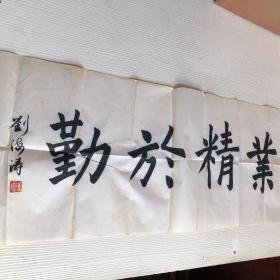 業精於勤
劉海濤